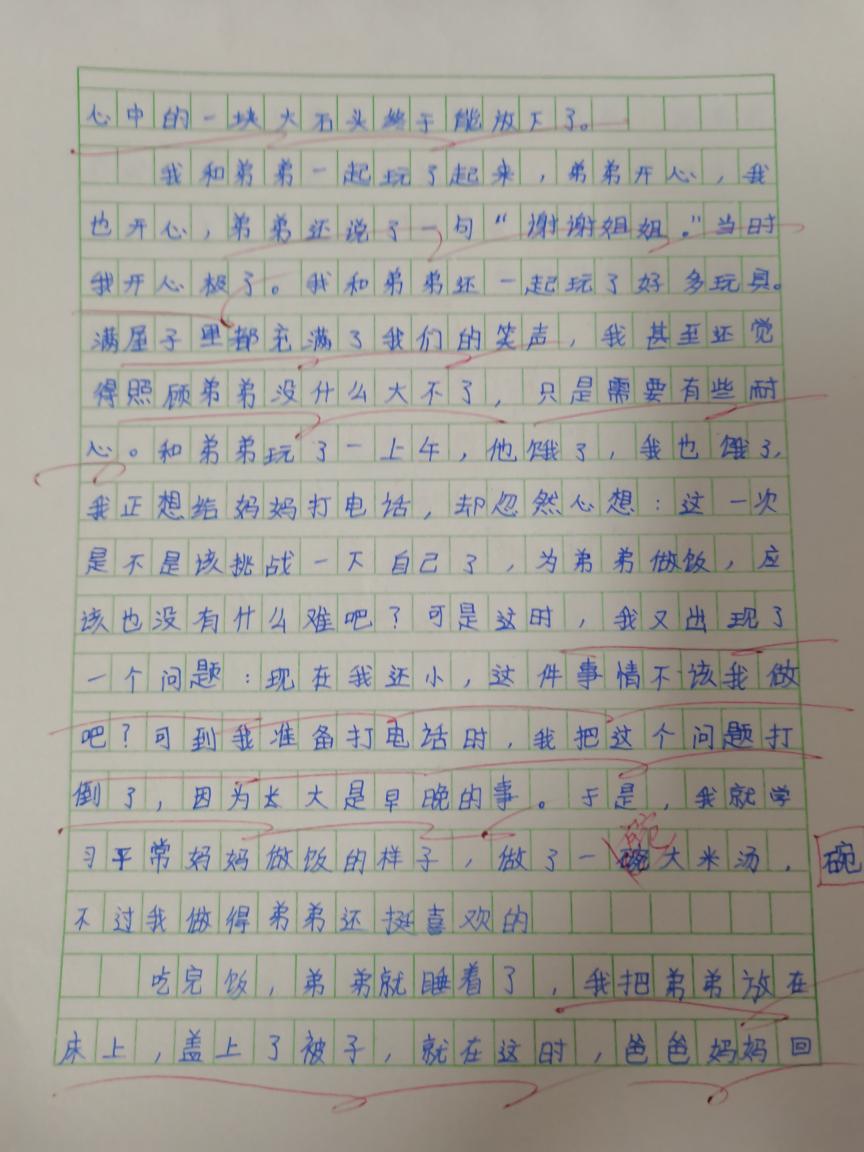 心中的一块大石头终于能放下了。
我和弟弟一起玩了起来，弟弟开心，我
也开心，弟弟还说了一句“谢谢姐姐。”当时
我开心极了。我和弟弟还一起玩了好多玩具。
满屋子里都充满了我们的笑声，我甚至还觉
得照顾弟弟没什么大不了，只是需要有些耐
心。和弟弟玩了一上午，他饿了，我也饿了，
我正想给妈妈打电话，却忽然心想：这一次
是不是该挑战一下自己了，为弟弟做饭，应
该也没有什么难吧？可是这时，我又出现了
一个问题：现在我还小，这件事情不该我做
吧？可到我准备打电话时，我把这个问题打
倒了，因为长大是早晚的事。于是，我就学
习平常妈妈做饭的样子，做了一碗大米汤．
碗
碗
不过我做得弟弟还挺喜欢的
吃完饭，弟弟就睡着了，我把弟弟放在
床上，盖上了被子，就在这时，爸爸妈妈回